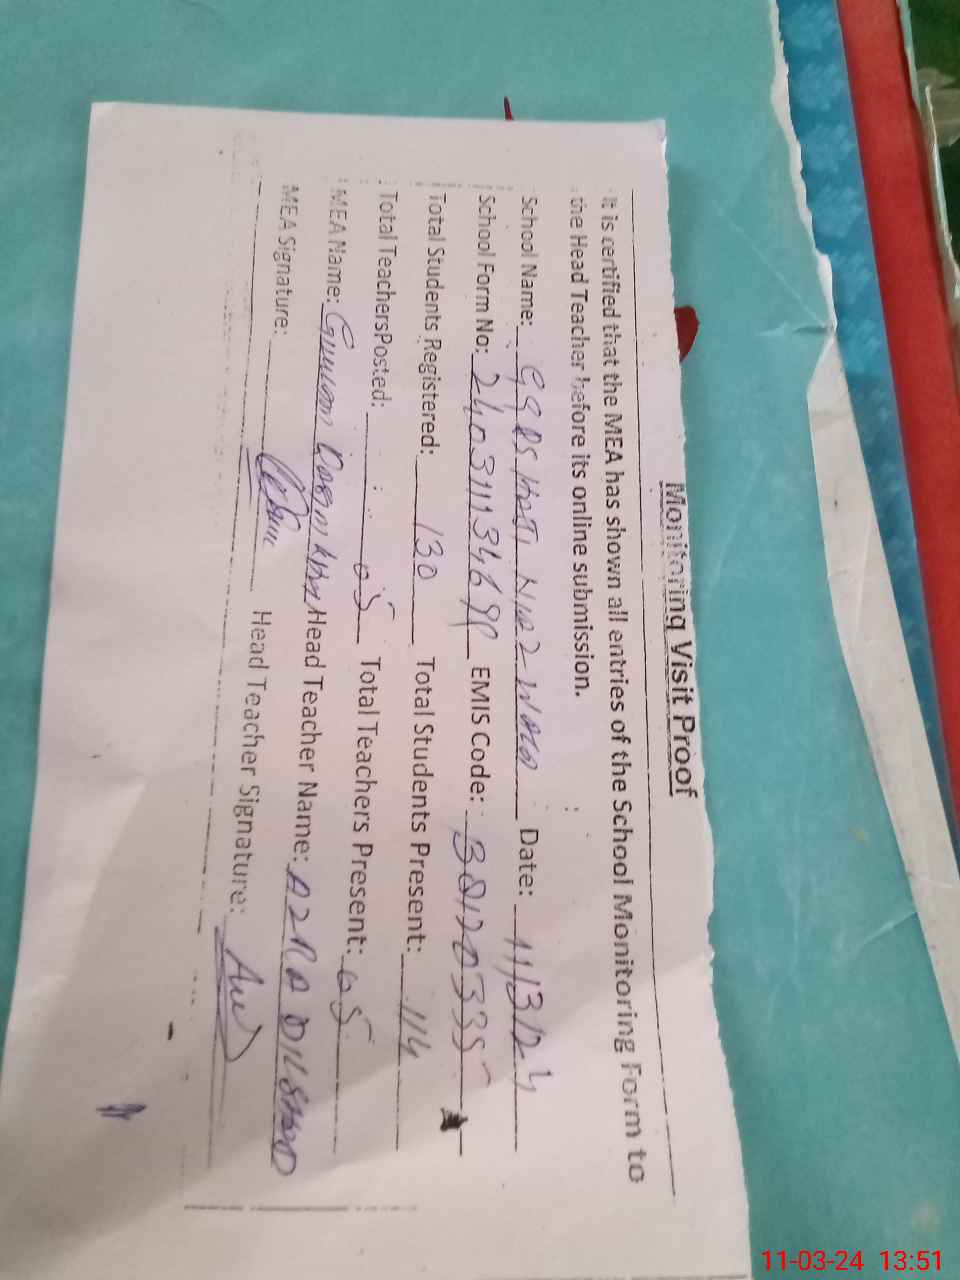 Monitoring Visit Proof
It is certified that the MEA has shown all entries of the School Monitoring Form to
the Head Teacher before its online submission.
School Name: Date: 11/3/24
School Form No: EMIS Code:
Total Students Registered: 130 Total Students Present: 114
Total Teachers Posted: 05 Total Teachers Present: 05
MEA Name: Head Teacher Name: AZRA DILSHAD
MEA Signature: Head Teacher Signature:
11-03-24 13:51